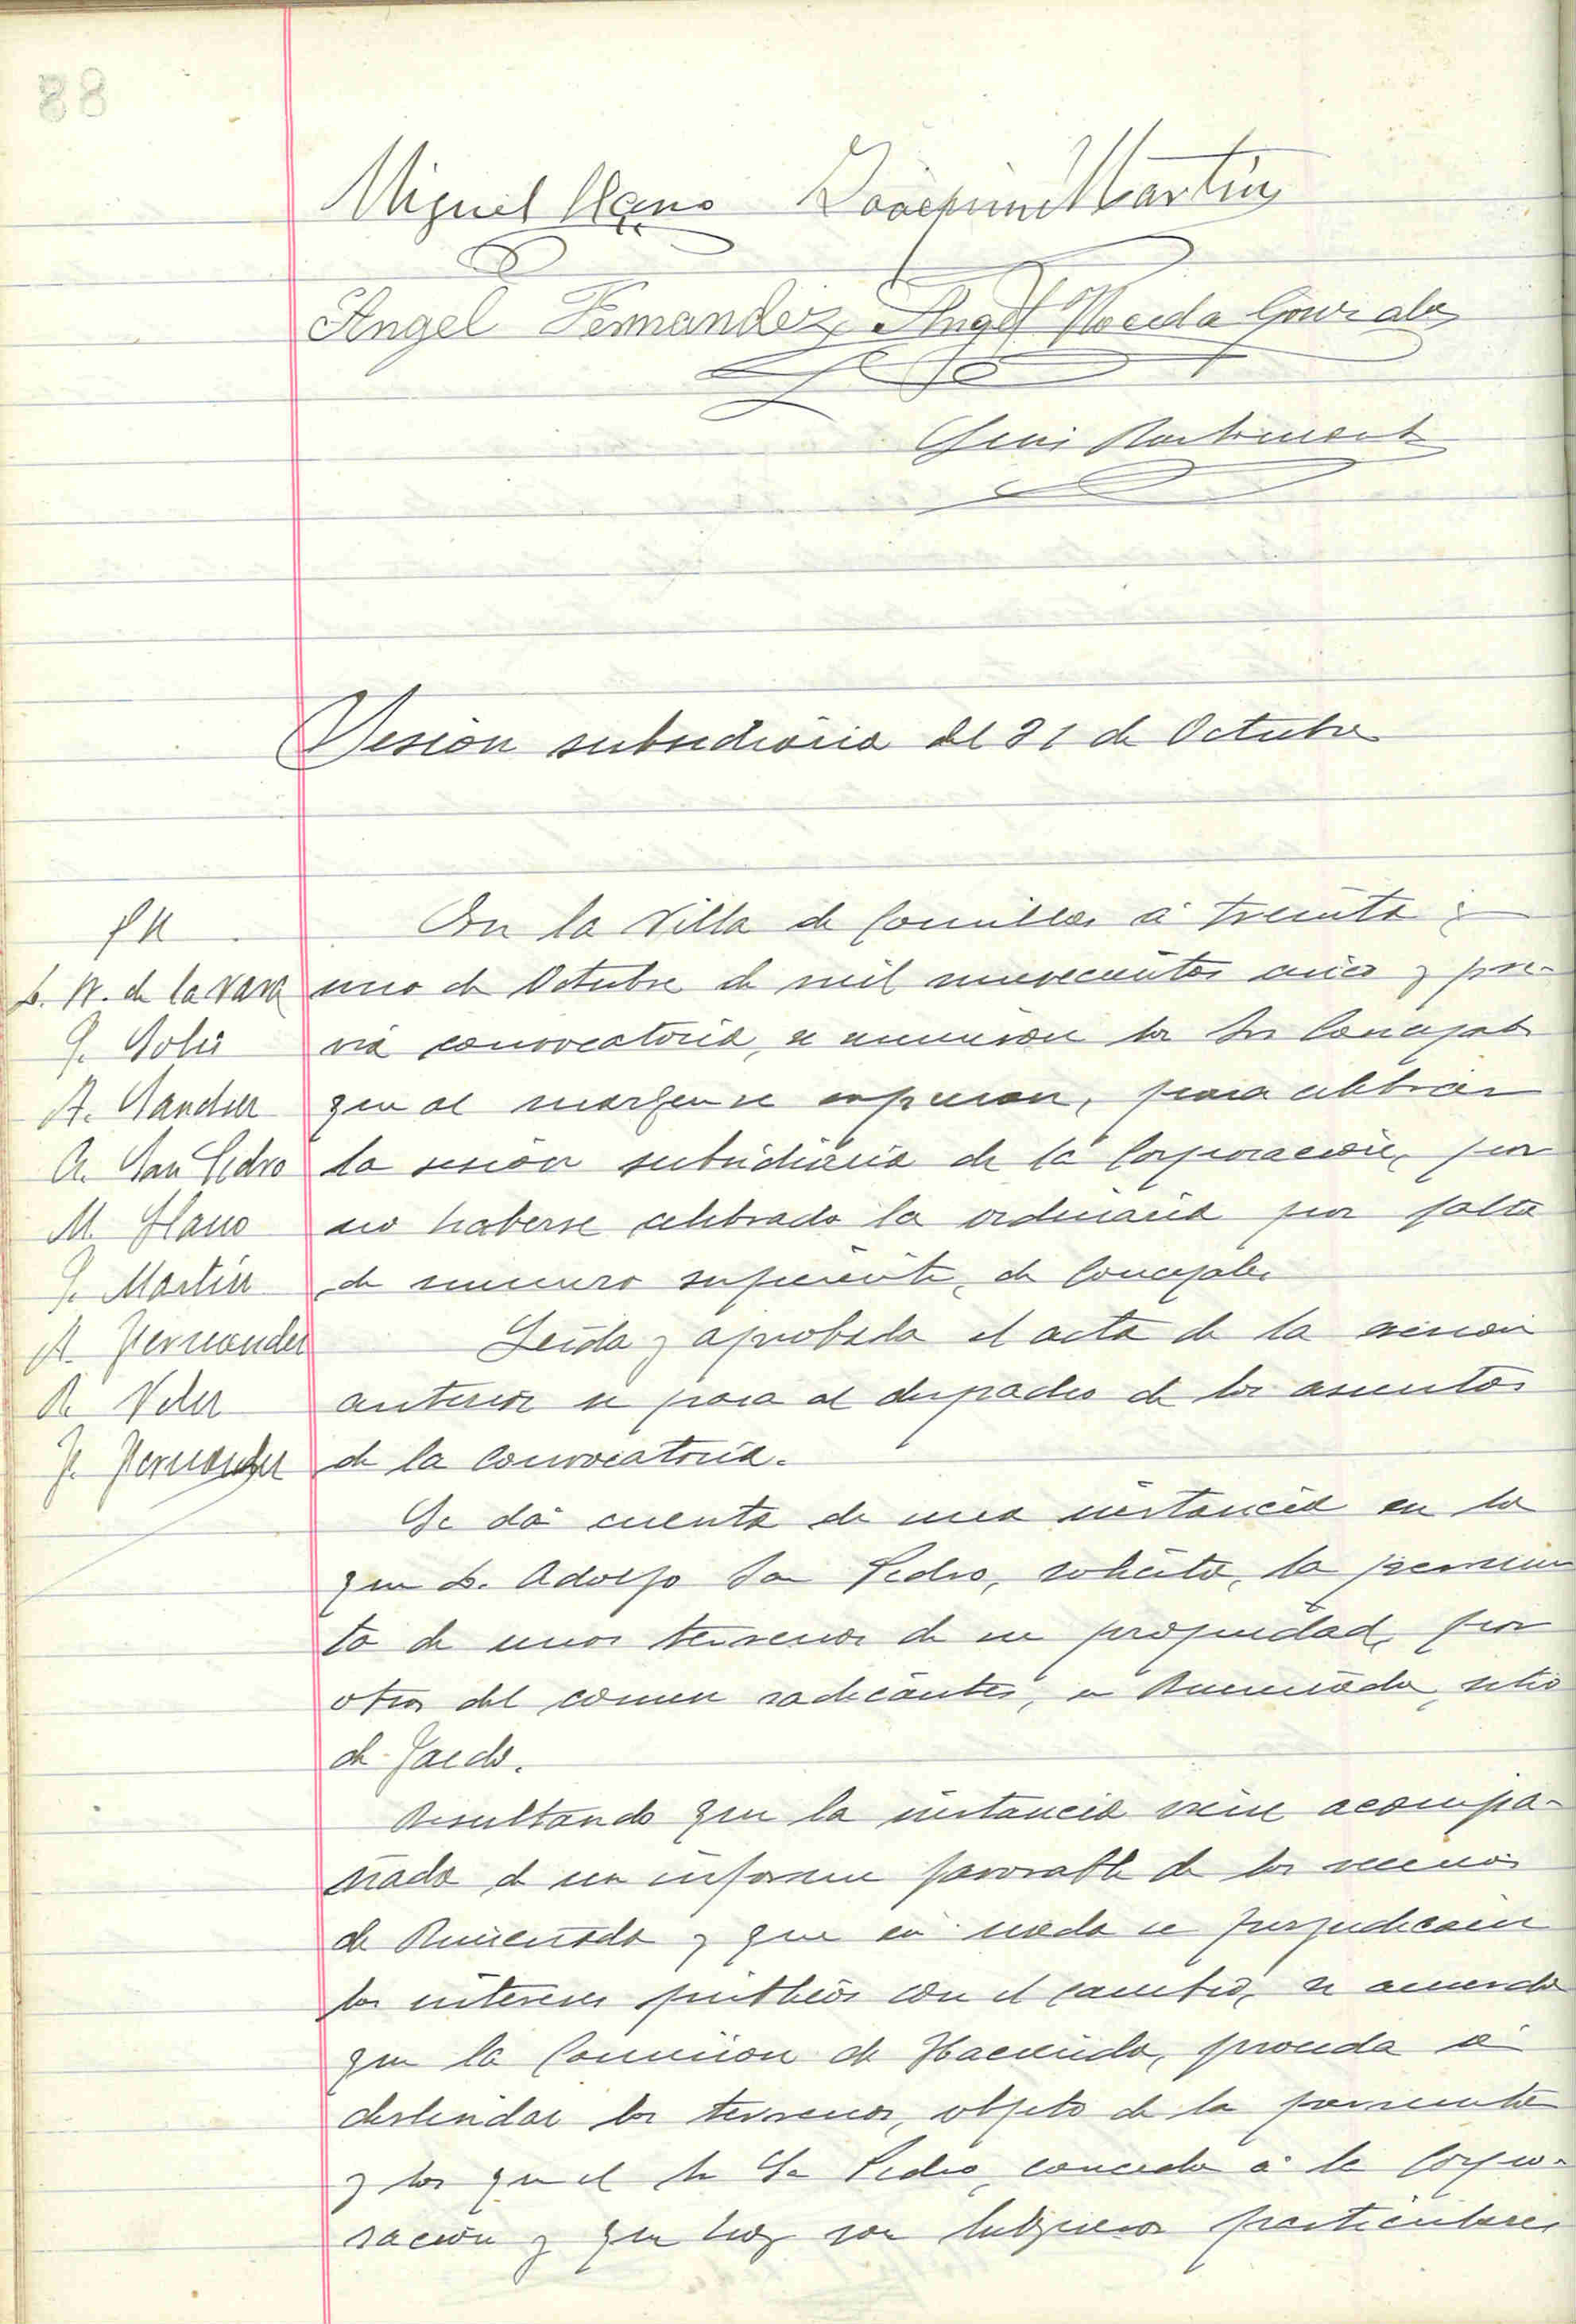 88
Miguel Llano Joaquin Martin
Angel Fernandez Angel Noceda Gonzalez
Sesion subsidiaria del 31 de Octubre
P M
D. N. de la Vara
J. Solis
A. Sanchez
A. San Pedro
M. Llano
J. Martin
A. Fernandez
R. Velez
F. Fernandez
En la Villa de Comillas á treinta y
uno de Octubre de mil novecientos cinco y pre-
via convocatoria, se reunieron los Srs Concejales
que al margen se expresan, para celebrar
la sesión subsidiaria de la Corporación, por
no haberse celebrado la ordinaria por falta
de numero suficiente de Concejales
Leida y aprobada el acta de la sesion
anterior se pasa al despacho de los asuntos
de la convocatoria.
Se dá cuenta de una instancia en la
que D. Adolfo San Pedro, solicita, la permu
ta de unos terrenos de su propiedad, por
otros del comun radicantes, en Ruiseñada, sitio
de
Resultando que la instancia viene acompa-
ñada de un informe favorable de los vecinos
de Ruiseñada y que en nada se perjudican
los intereses publicos con el cambio, se acuerda
que la Comision de Hacienda, proceda á
deslindar los terrenos, objeto de la permuta
y los que el Sr Sn Pedro, conceda á la Corpo-
racion y que hoy son particulares